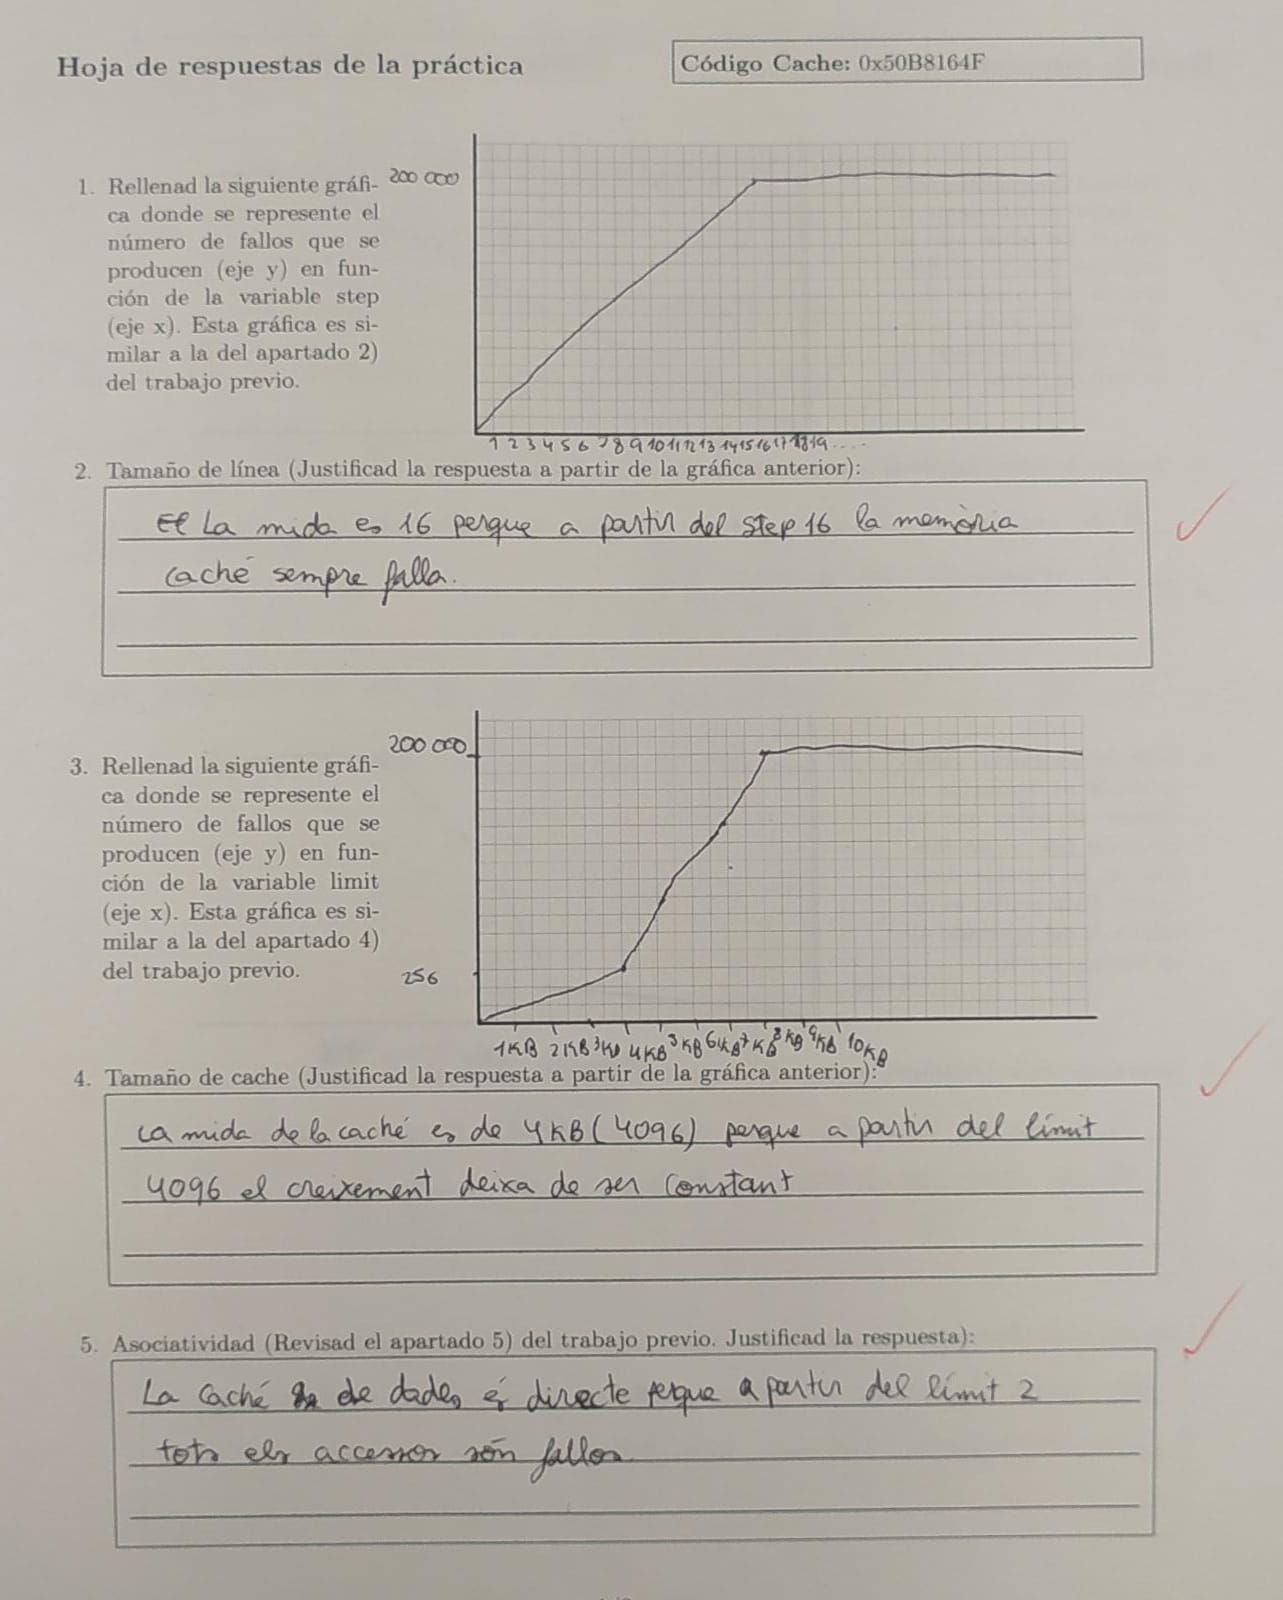 Hoja de respuestas de la práctica
Código Cache: 0x50B8164F
1. Rellenad la siguiente gráfi-
ca donde se represente el
número de fallos que se
producen (eje y) en fun-
ción de la variable step
(eje x). Esta gráfica es si-
milar a la del apartado 2)
del trabajo previo.
200 000
1 2 3 4 5 6 7 8 9 10 11 12 13 14 15 16 17 18 19 ....
2. Tamaño de línea (Justificad la respuesta a partir de la gráfica anterior):
La mida es 16 perque a partir del step 16 la memòria
caché sempre falla.
3. Rellenad la siguiente gráfi-
ca donde se represente el
número de fallos que se
producen (eje y) en fun-
ción de la variable limit
(eje x). Esta gráfica es si-
milar a la del apartado 4)
del trabajo previo.
200 000
256
1KB 2KB 3KB 4KB 5KB 6KB 7KB 8KB 9KB 10KB
4. Tamaño de cache (Justificad la respuesta a partir de la gráfica anterior):
La mida de la caché es de 4KB (4096) perque a partir del límit
4096 el creixement deixa de ser constant
5. Asociatividad (Revisad el apartado 5) del trabajo previo. Justificad la respuesta):
La caché de dades és directe perque a partir del límit 2
tots els accessos són fallos